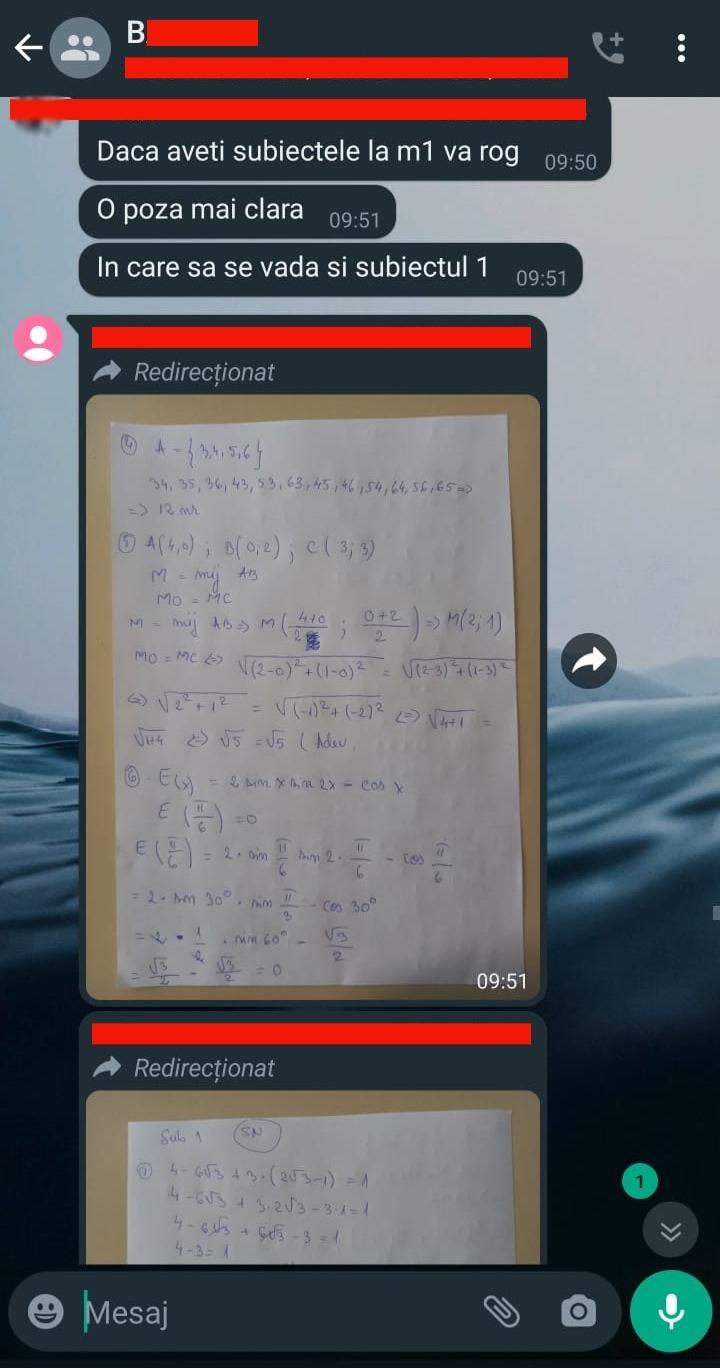 B
Daca aveti subiectele la m1 va rog 09:50
O poza mai clara 09:51
In care sa se vada si subiectul 1 09:51
Redirecționat
④ A = {3,4,5,6}
34, 35, 36, 43, 53, 63, 45, 46, 54, 64, 56, 65 =>
=> 12 nr
⑤ A(4,0) ; B(0;2) ; C(3;3)
M = mij AB
MO = MC
M = mij AB => M(4+0/2 ; 0+2/2) => M(2;1)
MO = MC <=> √(2-0)²+(1-0)² = √(2-3)²+(1-3)²
<=> √2²+1² = √(-1)²+(-2)² <=> √4+1 =
√1+4 <=> √5 = √5 (Adev.
⑥. E(x) = 2 sin x sin 2x - cos x
E(π/6) = 0
E(π/6) = 2 · sin π/6 sin 2 · π/6 - cos π/6
= 2 · sin 30° · sin π/3 - cos 30°
= 2 · 1/2 · sin 60° - √3/2
= √3/2 - √3/2 = 0
09:51
Redirecționat
Sub 1 SN
① 4 - 6√3 + 3·(2√3-1) = 1
4 - 6√3 + 3·2√3 - 3·1 = 1
4 - 6√3 + 6√3 - 3 = 1
4-3 = 1
1
Mesaj